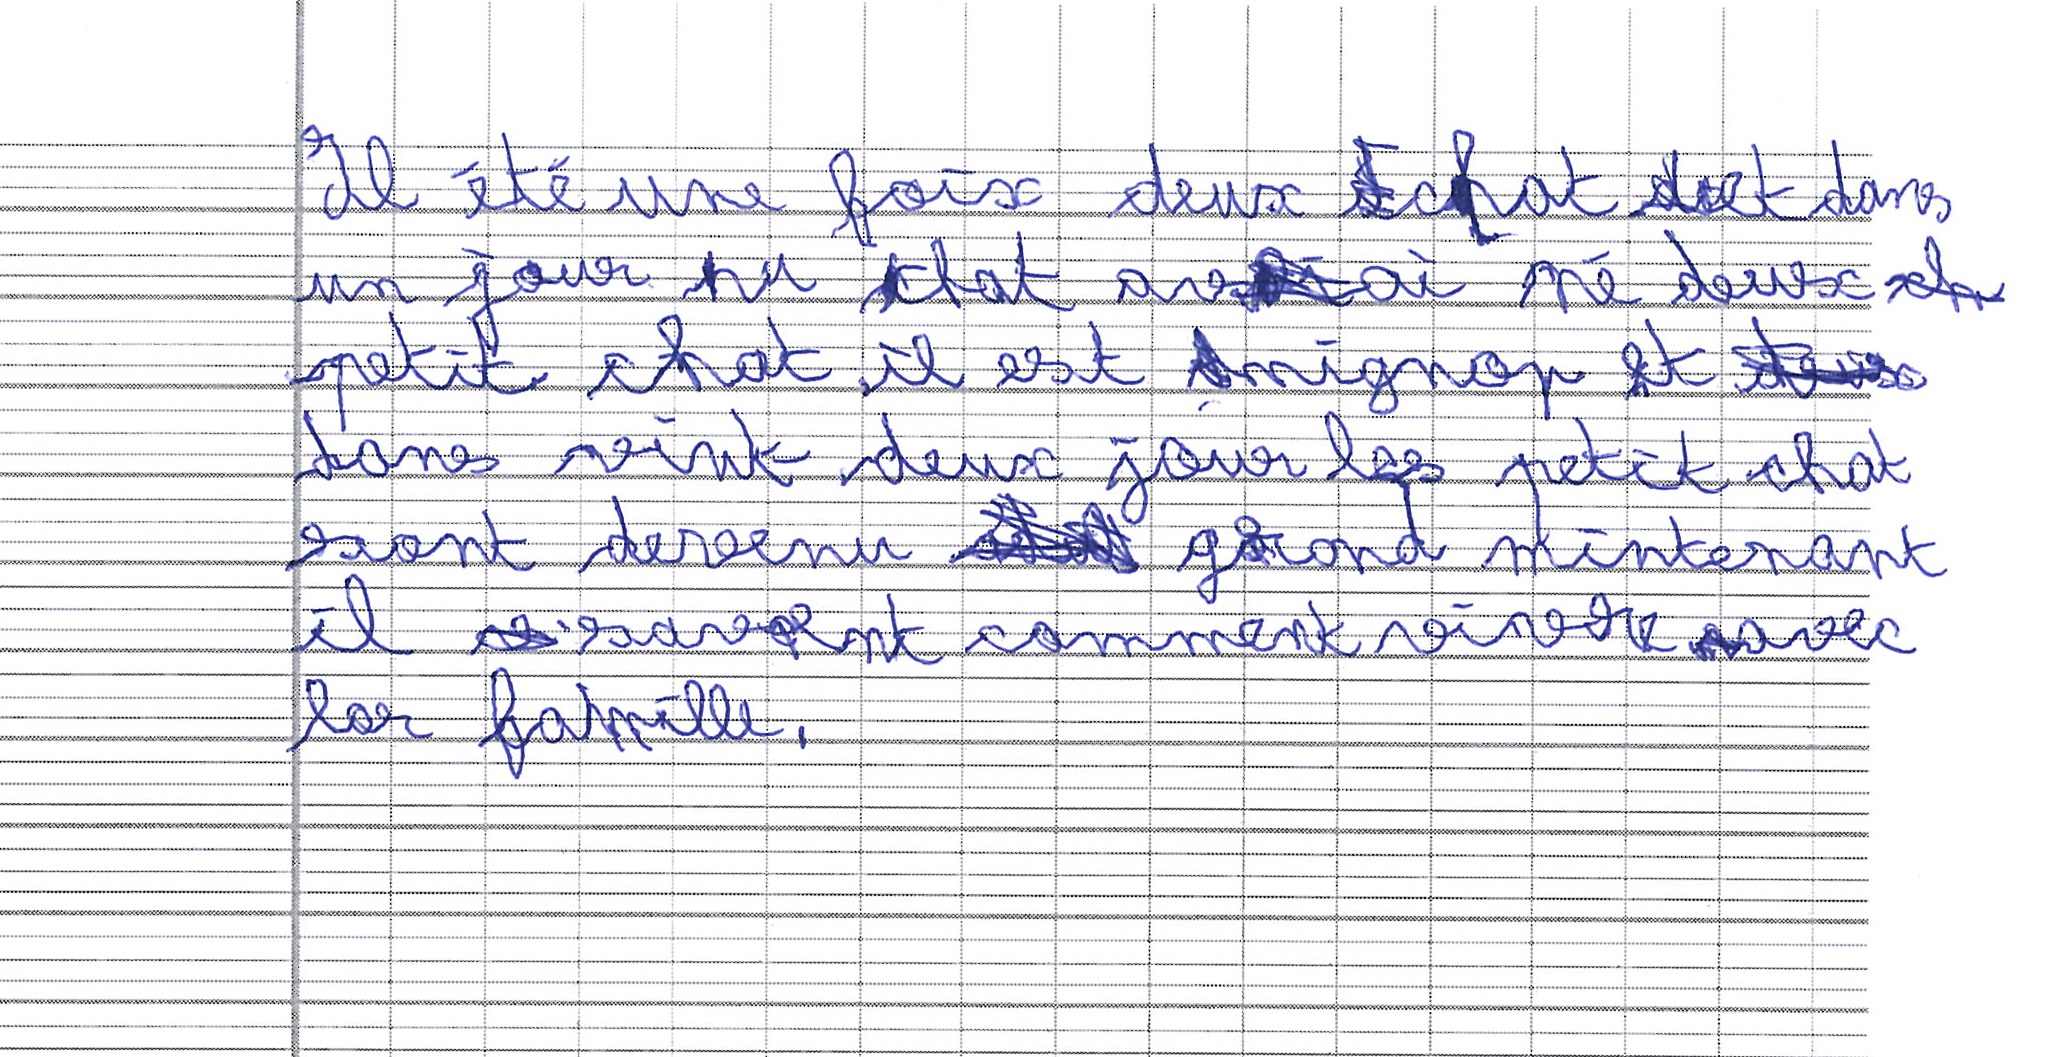 Il été une foix deux chat dans
un jour nu chat avai né deux
petit chat il est mignon et
dans vint deux jour les petit chat
sont deveenu grand mintenant
il savent comment vivre avec
lor famille.